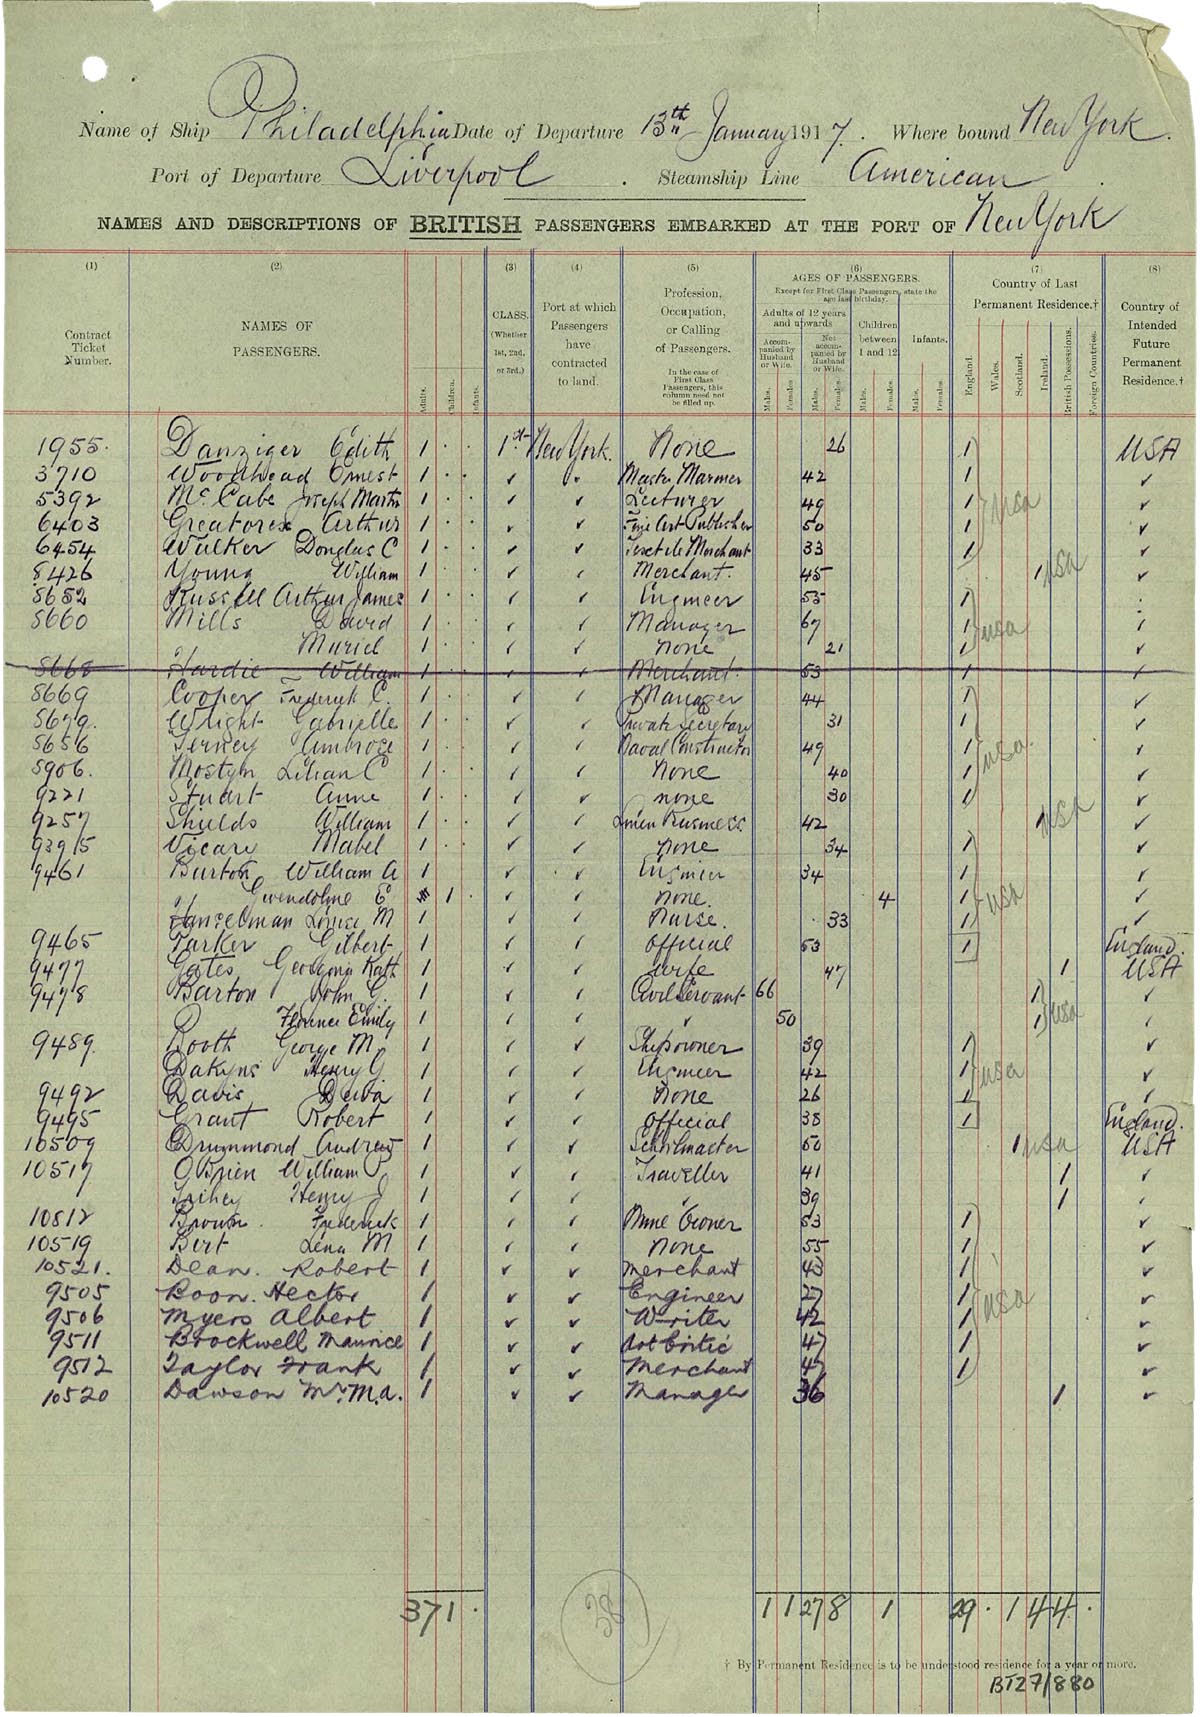 Name of Ship Philadelphia Date of Departure 13th January 1917. Where bound New York.
Port of Departure Liverpool . Steamship Line American .
NAMES AND DESCRIPTIONS OF BRITISH PASSENGERS EMBARKED AT THE PORT OF New York
(1) (2) (3) (4) (5) (6) (7) (8)
Contract Ticket Number.
NAMES OF PASSENGERS.
Adults. Children. Infants.
CLASS. (Whether 1st, 2nd, or 3rd.)
Port at which Passengers have contracted to land.
Profession, Occupation, or Calling of Passengers.
In the case of First Class Passengers, this column need not be filled up.
AGES OF PASSENGERS.
Except for First Class Passengers, state the age last birthday.
Adults of 12 years and upwards
Accompanied by Husband or Wife.
Not accompanied by Husband or Wife.
Children between 1 and 12
Infants.
Males. Females. Males. Females. Males. Females. Males. Females.
Country of Last Permanent Residence.†
England. Wales. Scotland. Ireland. British Possessions. Foreign Countries.
Country of Intended Future Permanent Residence.†
1955. Danziger Edith 1 . . 1st New York. None 26 1 USA
3710 Woodhead Ernest 1 . . ✓ ✓ Master Mariner 42 1 ✓
5392 McCabe Joseph Martin 1 . . ✓ ✓ Lecturer 49 1 usa ✓
6403 Greatorex Arthur 1 . . ✓ ✓ Fine Art Publisher 50 1 ✓
6454 Walker Douglas C 1 . . ✓ ✓ Textile Merchant 33 1 ✓
8426 Young William 1 . . ✓ ✓ Merchant. 45 1 usa ✓
8652 Russell Arthur James 1 . . ✓ ✓ Engineer 55 1
8660 Mills David 1 . . ✓ ✓ Manager 67 1 usa
" Muriel 1 . . ✓ ✓ none 21 1 ✓
8668 Hardie William 1 . . ✓ ✓ Merchant. 53 1
8669 Cooper Frederick C. 1 . . ✓ ✓ Manager 44 1 ✓
8679. Wright Gabrielle 1 . . ✓ ✓ Private Secretary 31 1 ✓
8686 Ambrose 1 . . ✓ ✓ Naval Constructor 49 1 usa. ✓
8906. Mostyn Lilian C 1 . . ✓ ✓ None 40 1 ✓
9221 Stuart Anne 1 . . ✓ ✓ none 30 1 ✓
9257 Shields William 1 . . ✓ ✓ Linen Business 42 1 usa ✓
Vicary Mabel 1 . . ✓ ✓ none 34 1 ✓
9461 Burton William A 1 ✓ ✓ Engineer 34 1 ✓
" Gwendoline E 1 . ✓ ✓ none. 4 1 usa ✓
Louise M 1 ✓ ✓ Nurse. 33 1 ✓
9465 Parker Gilbert 1 ✓ ✓ Official 53 1 England.
9477 Gates Georgina Kath 1 ✓ ✓ wife 47 1 USA
9478 Barton John G. 1 ✓ ✓ Civil Servant 66 1 ✓
Florence Emily 1 ✓ ✓ ✓ 50 1 usa ✓
9489. Booth George M. 1 ✓ ✓ Shipowner 39 1 ✓
Dakyns Henry G 1 ✓ ✓ Engineer 42 1 usa ✓
9492 Davis 1 ✓ ✓ None 26 1 ✓
9495 Grant Robert 1 ✓ ✓ Official 38 1 England.
10509 Drummond Andrew 1 ✓ ✓ Schoolmaster 50 1 usa USA
10517 O'Brien William J 1 ✓ ✓ Traveller 41 1 ✓
Henry J 1 ✓ ✓ 39 1 ✓
Brown. Frederick 1 ✓ ✓ Mine Owner 53 1 ✓
10519 Birt Lena M 1 ✓ ✓ None 55 1 ✓
10521. Dean. Robert 1 ✓ ✓ Merchant 43 1 ✓
9505 Boon. Hector 1 ✓ ✓ Engineer 27 1 usa ✓
9506 Myers Albert 1 ✓ ✓ Writer 42 1 ✓
9511 Brockwell Maurice 1 ✓ ✓ Art Critic 47 1 ✓
9512 Taylor Frank 1 ✓ ✓ Merchant 1 ✓
10520 Dawson Mr. M.A. 1 ✓ ✓ Manager 36 1 ✓
37 1 . 38 1 1 27 8 1 29 . 1 4 4 .
† By Permanent Residence is to be understood residence for a year or more.
BT27/880